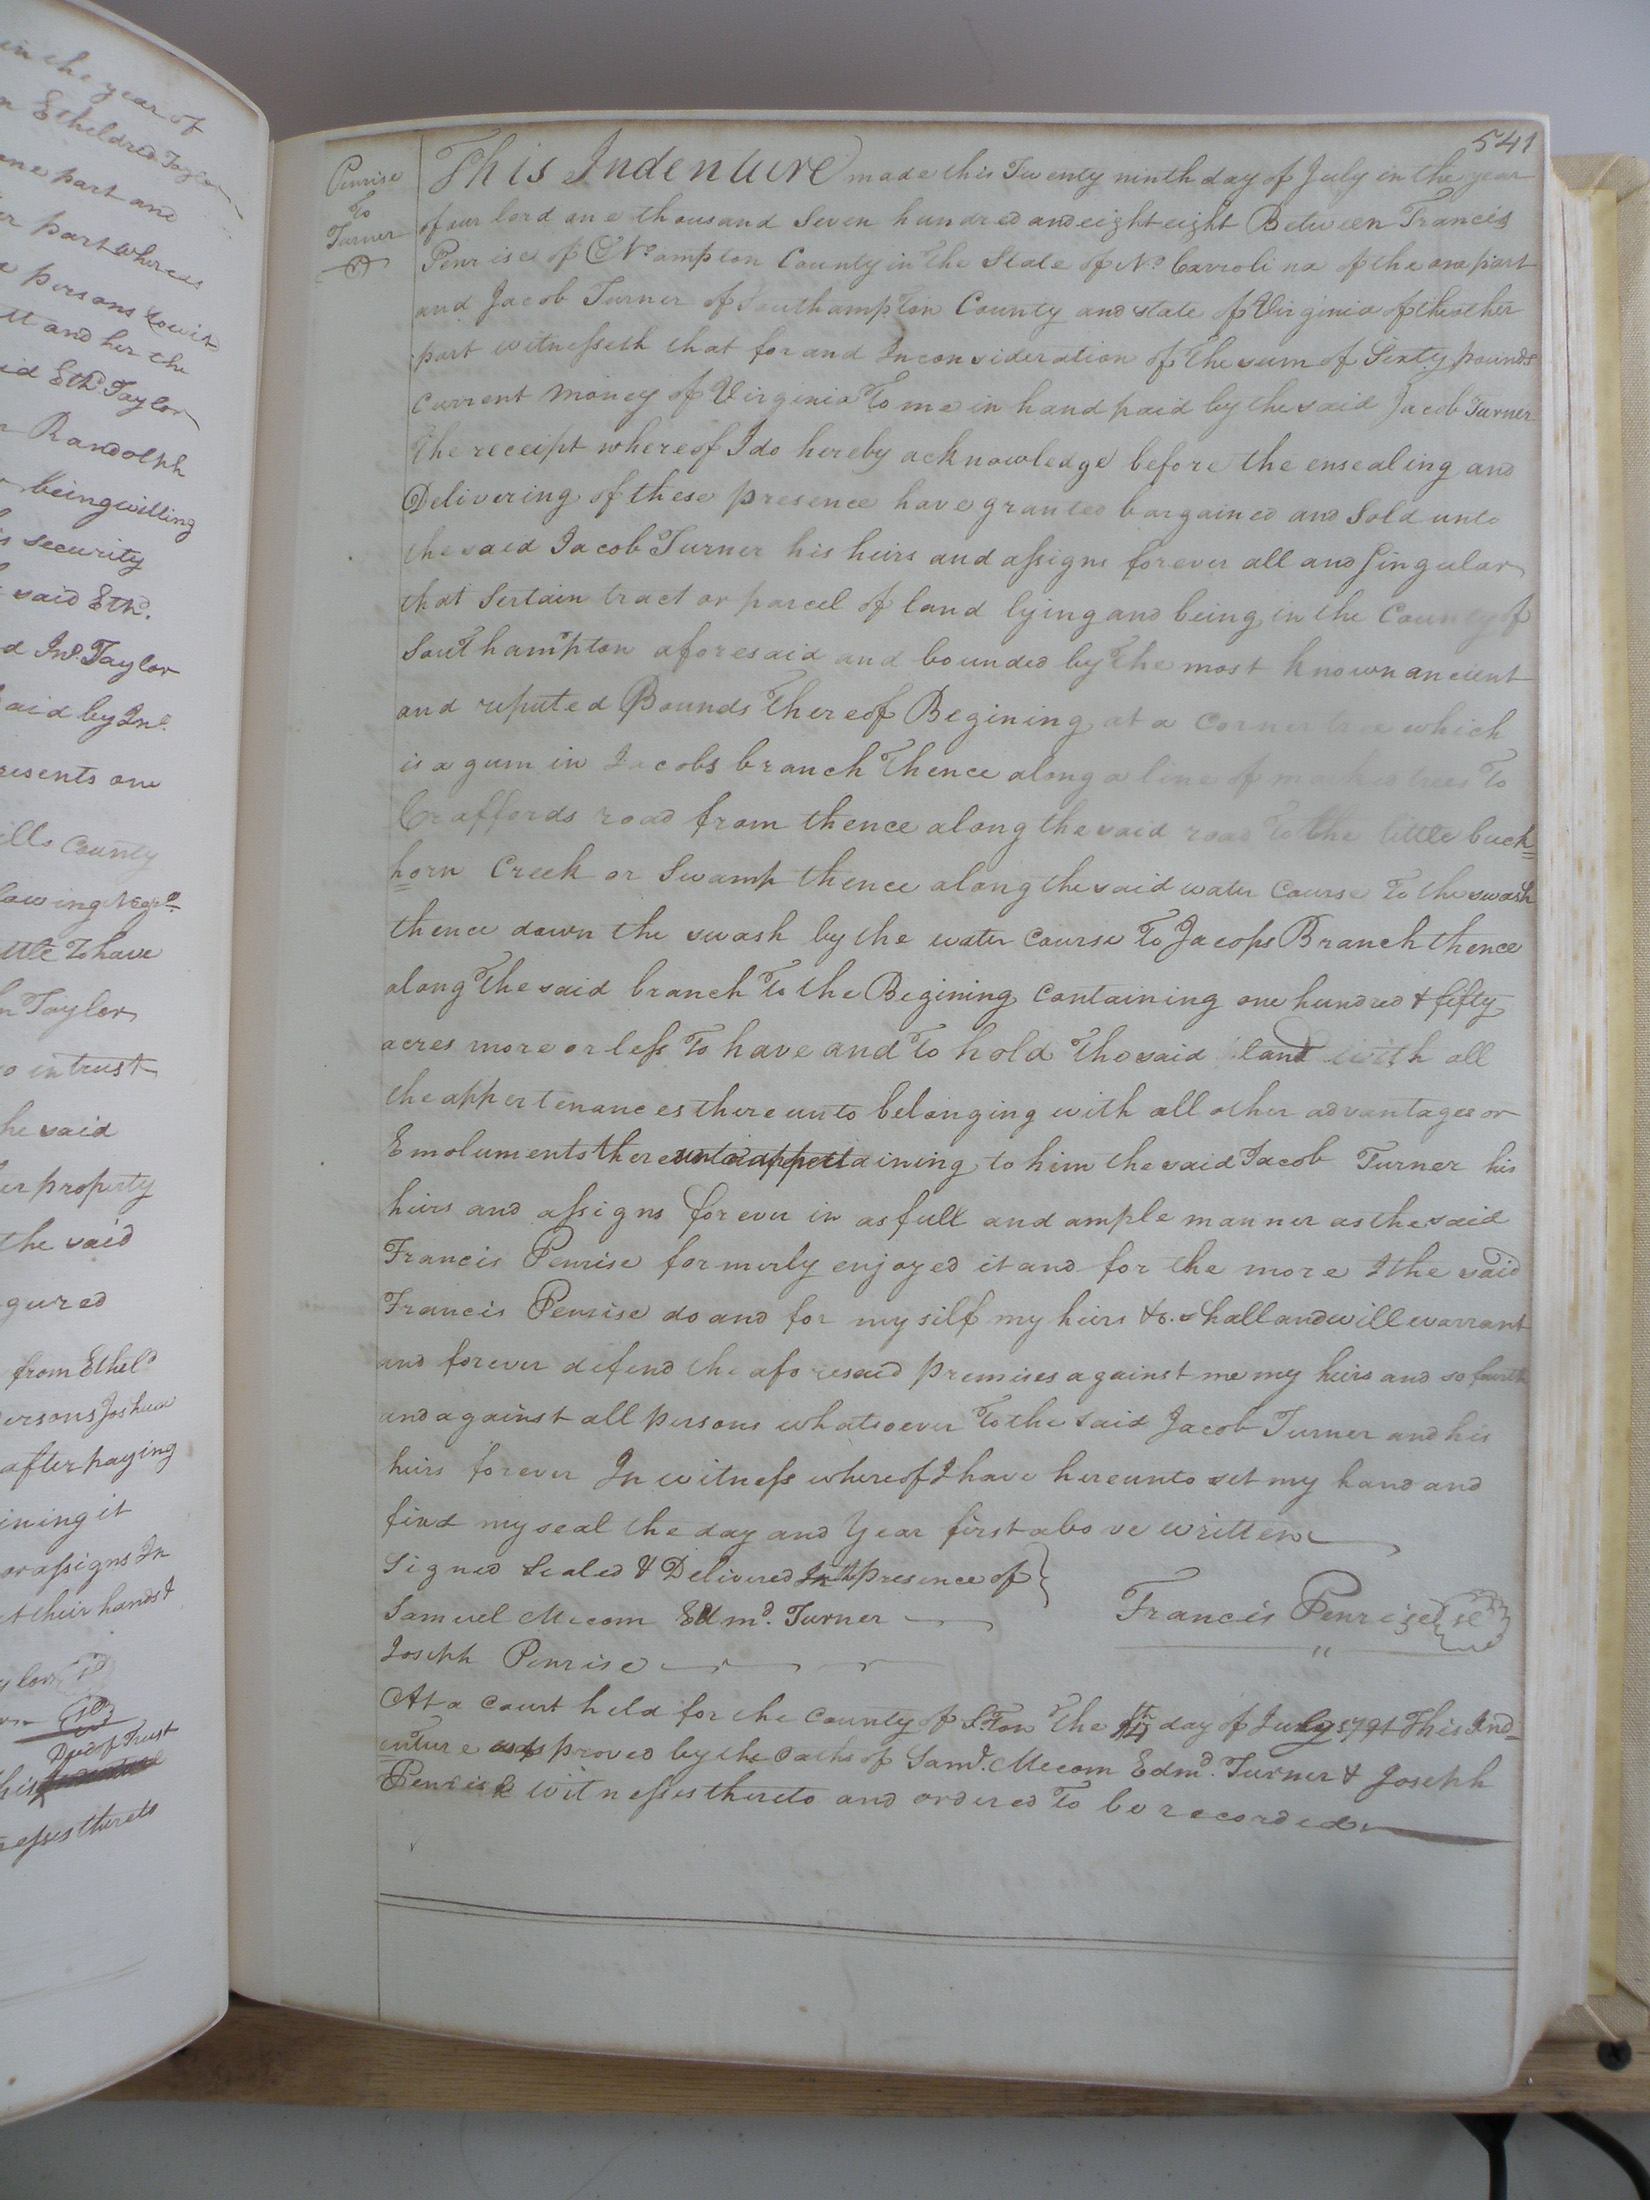 in the year of
n Etheldred Taylor
one part and
er part whereas
e persons towit
tt and her the
id Ethd. Taylor
n Randolph
r being willing
is security
said Ethd.
d Jno. Taylor
aid by Jno.
resents one
ills County
lowing Negro
ttle To have
n Taylor
o in trust
he said
er property
the said
gured
from Etheld
ersons Joshua
after paying
ining it
or assigns In
t their hands &
ylor
Deed of Trust
this
nesses thereto
541
Penrise
To
Turner
This Indenture made this Twenty ninth day of July in the year
of our lord one thousand Seven hundred and eight eight Between Francis
Penrise of No.ampton County in the State of No. Carrolina of the one part
and Jacob Turner of Southampton County and state of Virginia of the other
part witnesseth that for and In consideration of the sum of Sixty pounds
Current money of Virginia To me in hand paid by the said Jacob Turner
The receipt whereof I do hereby acknowledge before the ensealing and
Delivering of these presence have granted bargained and Sold unto
the said Jacob Turner his heirs and assigns forever all and Singular
that Sertain tract or parcel of land lying and being in the County of
Southampton aforesaid and bounded by The most known ancient
and reputed Bounds Thereof Begining at a Corner tree which
is a gum in Jacobs branch Thence along a line of marked trees To
Craffords road from thence along the said road To the little buck=
horn Creek or Swamp thence along the said water Course To the swash
thence down the swash by the water Course To Jacops Branch thence
along The said branch To the Begining Containing one hundred & fifty
acres more or less To have and To hold The said land with all
the appertenances there unto belonging with all other advantages or
Emoluments thereunto appertaining to him the said Jacob Turner his
heirs and assigns forever in as full and ample manner as the said
Francis Penrise formerly enjoyed it and for the more I the said
Francis Penrise do and for my self my heirs &c. shall and will warrant
and forever defend the aforesaid premises against me my heirs and so fourth
and against all persons whatsoever To the said Jacob Turner and his
heirs forever In witness whereof I have hereunto set my hand and
fixd my seal the day and Year first above written
Signed Sealed & Delivered In presence of
Samuel Mecom Edmd. Turner
Francis Penrise
Joseph Penrise
At a Court held for the County of S.Ton The day of July 1791 This Ind=
enture was proved by the Oaths of Saml. Mecom Edmd. Turner & Joseph
Penrise witnesses thereto and ordered To be recorded